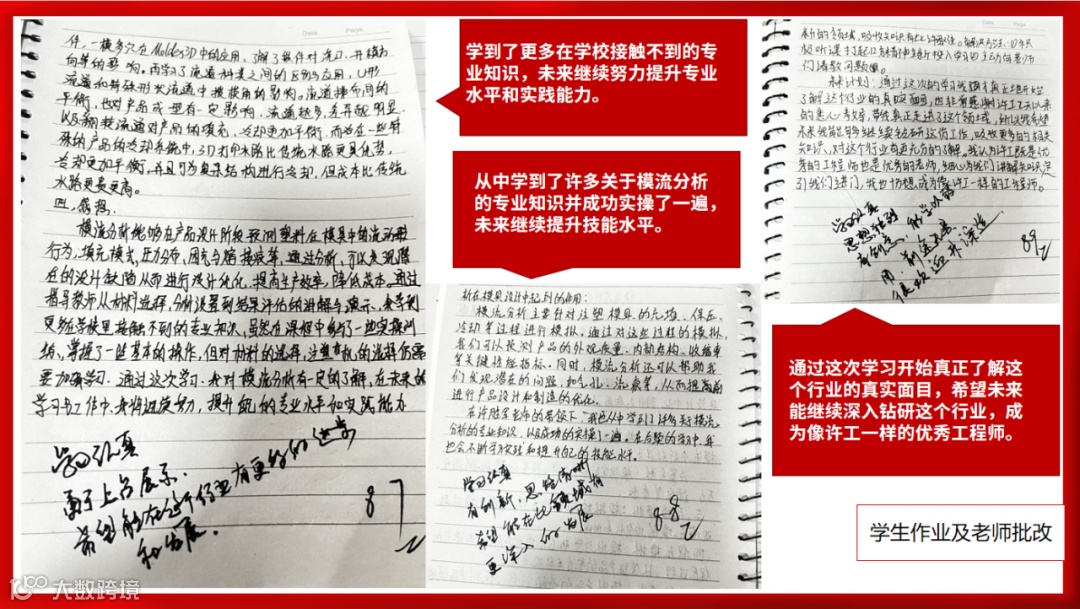 件，一模多穴在Moldex3D中的应用，了解了软件对流力、开模方
向等的影响。再学习了流道种类之间的区别与应用，U形
平衡，也对产品成型有一定影响，流道越多，差异越明显
殊的产品的冷却系统中，3D打印水路比传统水路更具优势，
冷却更加平衡，并且可为复杂结构进行冷却，但成本比传统
水路更高。
四、感想.
模流分析能够在产品设计阶段预测塑料在模具中的流动
行为，填充模式，压力分布，困气与熔接痕等。通过分析，可以发现潜
在的设计缺陷从而进行设计优化，提高生产效率，降低成本。通过
指导教师从材料选择，分析设置到结果评估的讲解与演示，我学到
更多在学校里接触不到的专业知识，虽然在课程中参与了一些实操训
练，掌握了一些基本的操作，但对材料的选择，注塑机的选择仍需
要加强学习。通过这次学习，我对模流分析有一定的了解，在未来的
学习与工作中，我将继续努力，提升自己的专业水平和实践能力
学习认真
勇于上台展示.
希望能在这个行业有更好的进步
和发展.
87
学到了更多在学校接触不到的专
业知识，未来继续努力提升专业
水平和实践能力。
从中学到了许多关于模流分析
的专业知识并成功实操了一遍，
未来继续提升技能水平。
析在模具设计中起到的作用：
模流分析主要针对注塑模具的充填、保压、
冷却等过程进行模拟。通过对这些过程的模拟，
我们可以预测产品的外观质量、内部结构、收缩率
等关键性能指标。同时，模流分析还可以帮助我
们发现潜在的问题，如气孔、流痕等，从而提前
进行产品设计和制造的优化。
在许胜宝老师的带领下，我也从中学到了许多关于模流
分析的专业知识，以及成功的实操了一遍。在后续的学习中，我
也会不断学习实践和提升自己的技能水平。
学习认真
有创新，思维清晰
希望能在此领域有
更深入的发展
88
未来计划：通过这次的学习我算才真正地开始
了解这行业的真实面目，
未来能够继续钻研这份工作，吸收更多的相关
知识，对这个行业有更充分的了解。我认为许工既是优
秀的工程师也是优秀的老师，细心为我们讲解知识，
引我们进门，我也梦想成为像许工一样的工程师。
学习认真
89
通过这次学习开始真正了解这
个行业的真实面目，希望未来
能继续深入钻研这个行业，成
为像许工一样的优秀工程师。
学生作业及老师批改
大数跨境